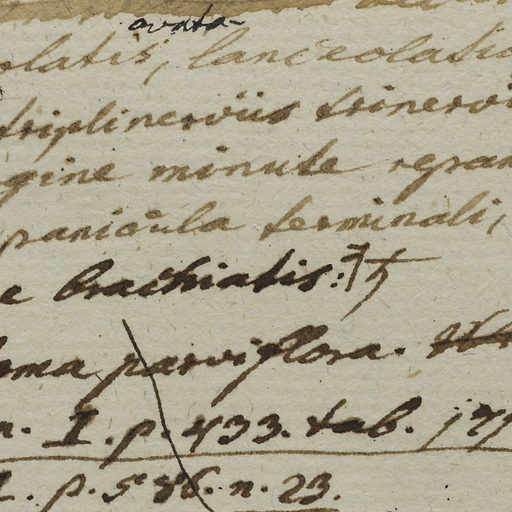 ovata-
olatis, lanceolatis
triplinerviis trinervi
gine minute repan
panicula terminali,
e brachiatis:
ema parviflora.
n. I. p. 433. tab. 17
I. p. 586. n. 23.